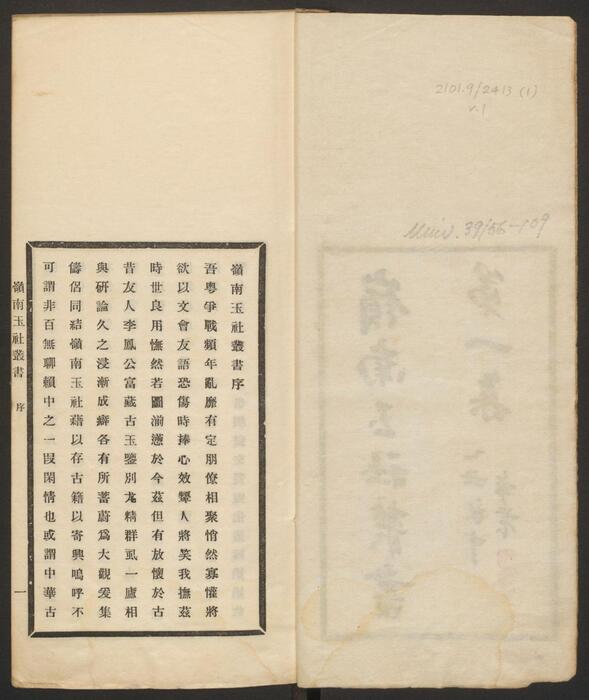 2101.9/2413 (1)
v.1
39/56-109
第一集
嶺南玉社叢書
嶺南玉社叢書序
吾粤爭戰頻年亂靡有定朋僚相聚悄然寡懽將
欲以文會友語恐傷時捧心效顰人將笑我撫茲
時世良用憮然若圖湔懣於今茲但有放懷於古
昔友人李鳳公富藏古玉鑒別尤精群虱一廬相
與研論久之浸漸成癖各有所蓄蔚爲大觀爰集
儔侶同結嶺南玉社藉以存古籍以寄興嗚呼不
可謂非百無聊賴中之一叚閑情也或謂中華古
嶺南玉社叢書 序 一